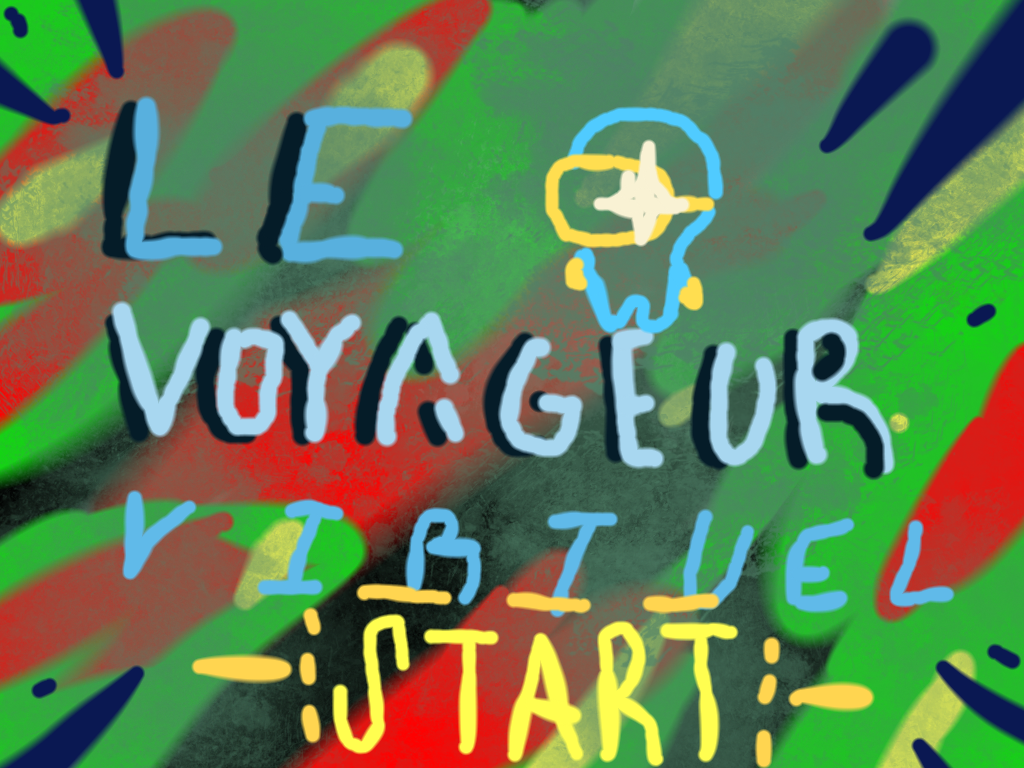 LE
VOYAGEUR
VIRTUEL
START